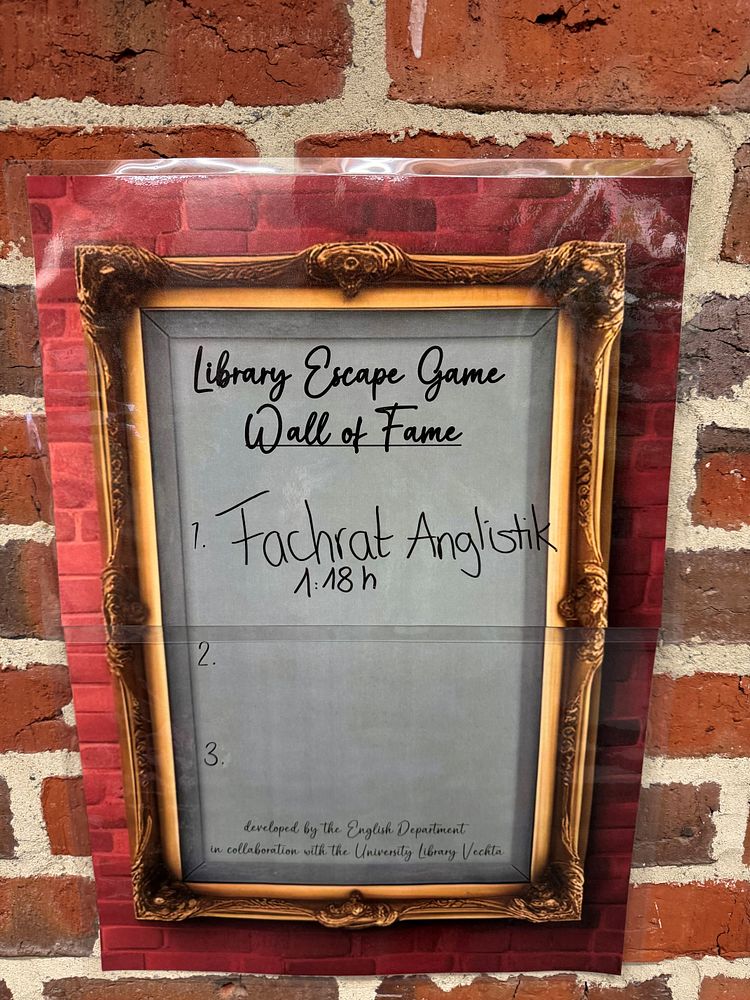 Library Escape Game
Wall of Fame
1. Fachrat Anglistik
1:18 h
2.
3.
developed by the English Department
in collaboration with the University Library Vechta